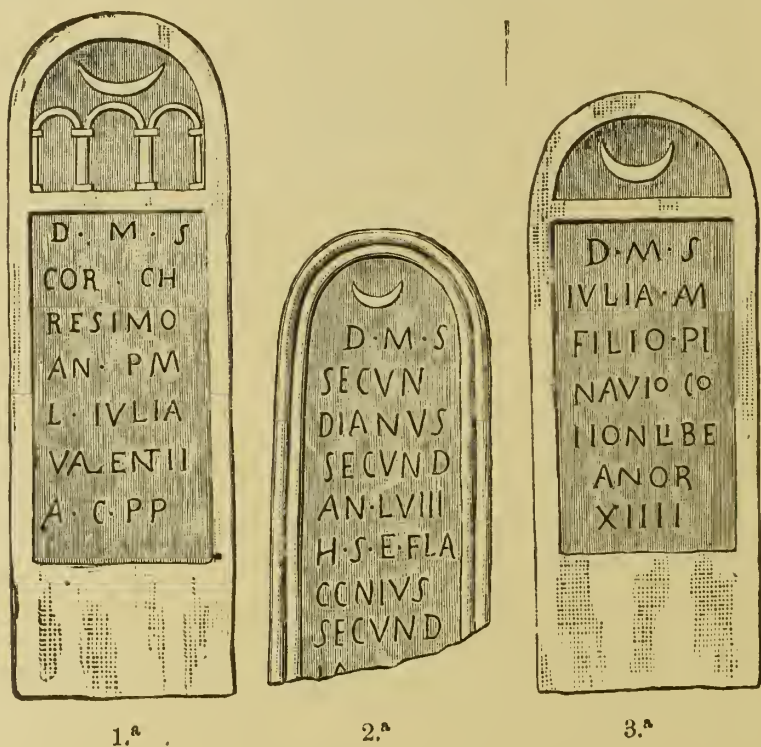 D · M · S
COR · CH
RESIMO
AN · PM
L · IVLIA
VALENTII
A · C · PP
1.ª
D · M · S
SECVN
DIANVS
SECVND
AN · LVIII
H · S · E · FLA
CCNIVS
SECVND
IA
2.ª
D · M · S
IVLIA · M
FILIO · PI
NAVIO CO
IION LIBE
ANOR
XIIII
3.ª